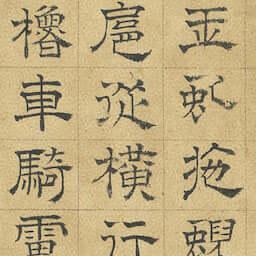 玉虬拖蜺
扈從橫行
櫓車騎雷